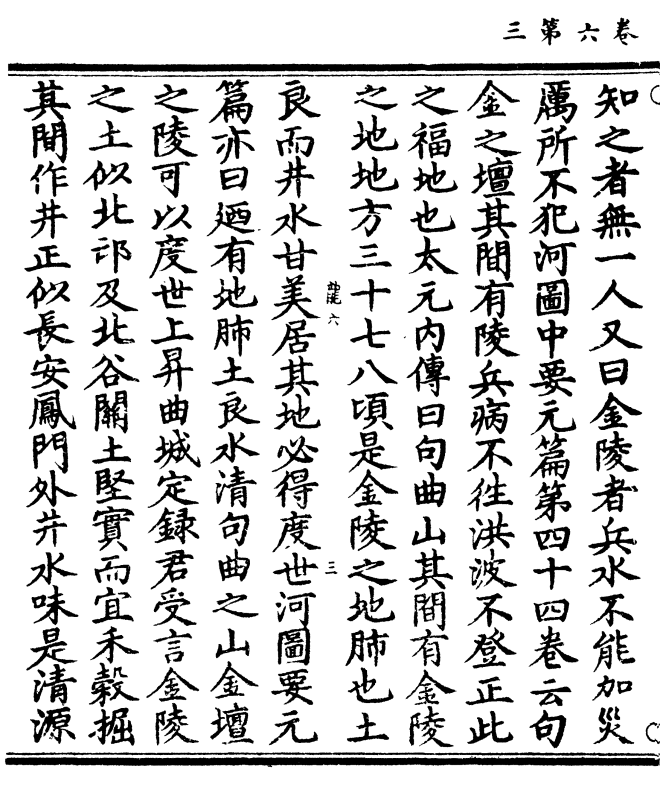 卷六第三
知之者無一人又曰金陵者兵水不能加災
厲所不犯河圖中要元篇第四十四卷云句
金之壇其間有陵兵病不往洪波不登正此
之福地也太元內傳曰句曲山其間有金陵
之地地方三十七八頃是金陵之地肺也土
龍六 三
良而井水甘美居其地必得度世河圖要元
篇亦曰廼有地肺土良水清句曲之山金壇
之陵可以度世上昇曲城定録君受言金陵
之土似北邙及北谷關土堅實而宜禾穀掘
其間作井正似長安鳳門外井水味是清源